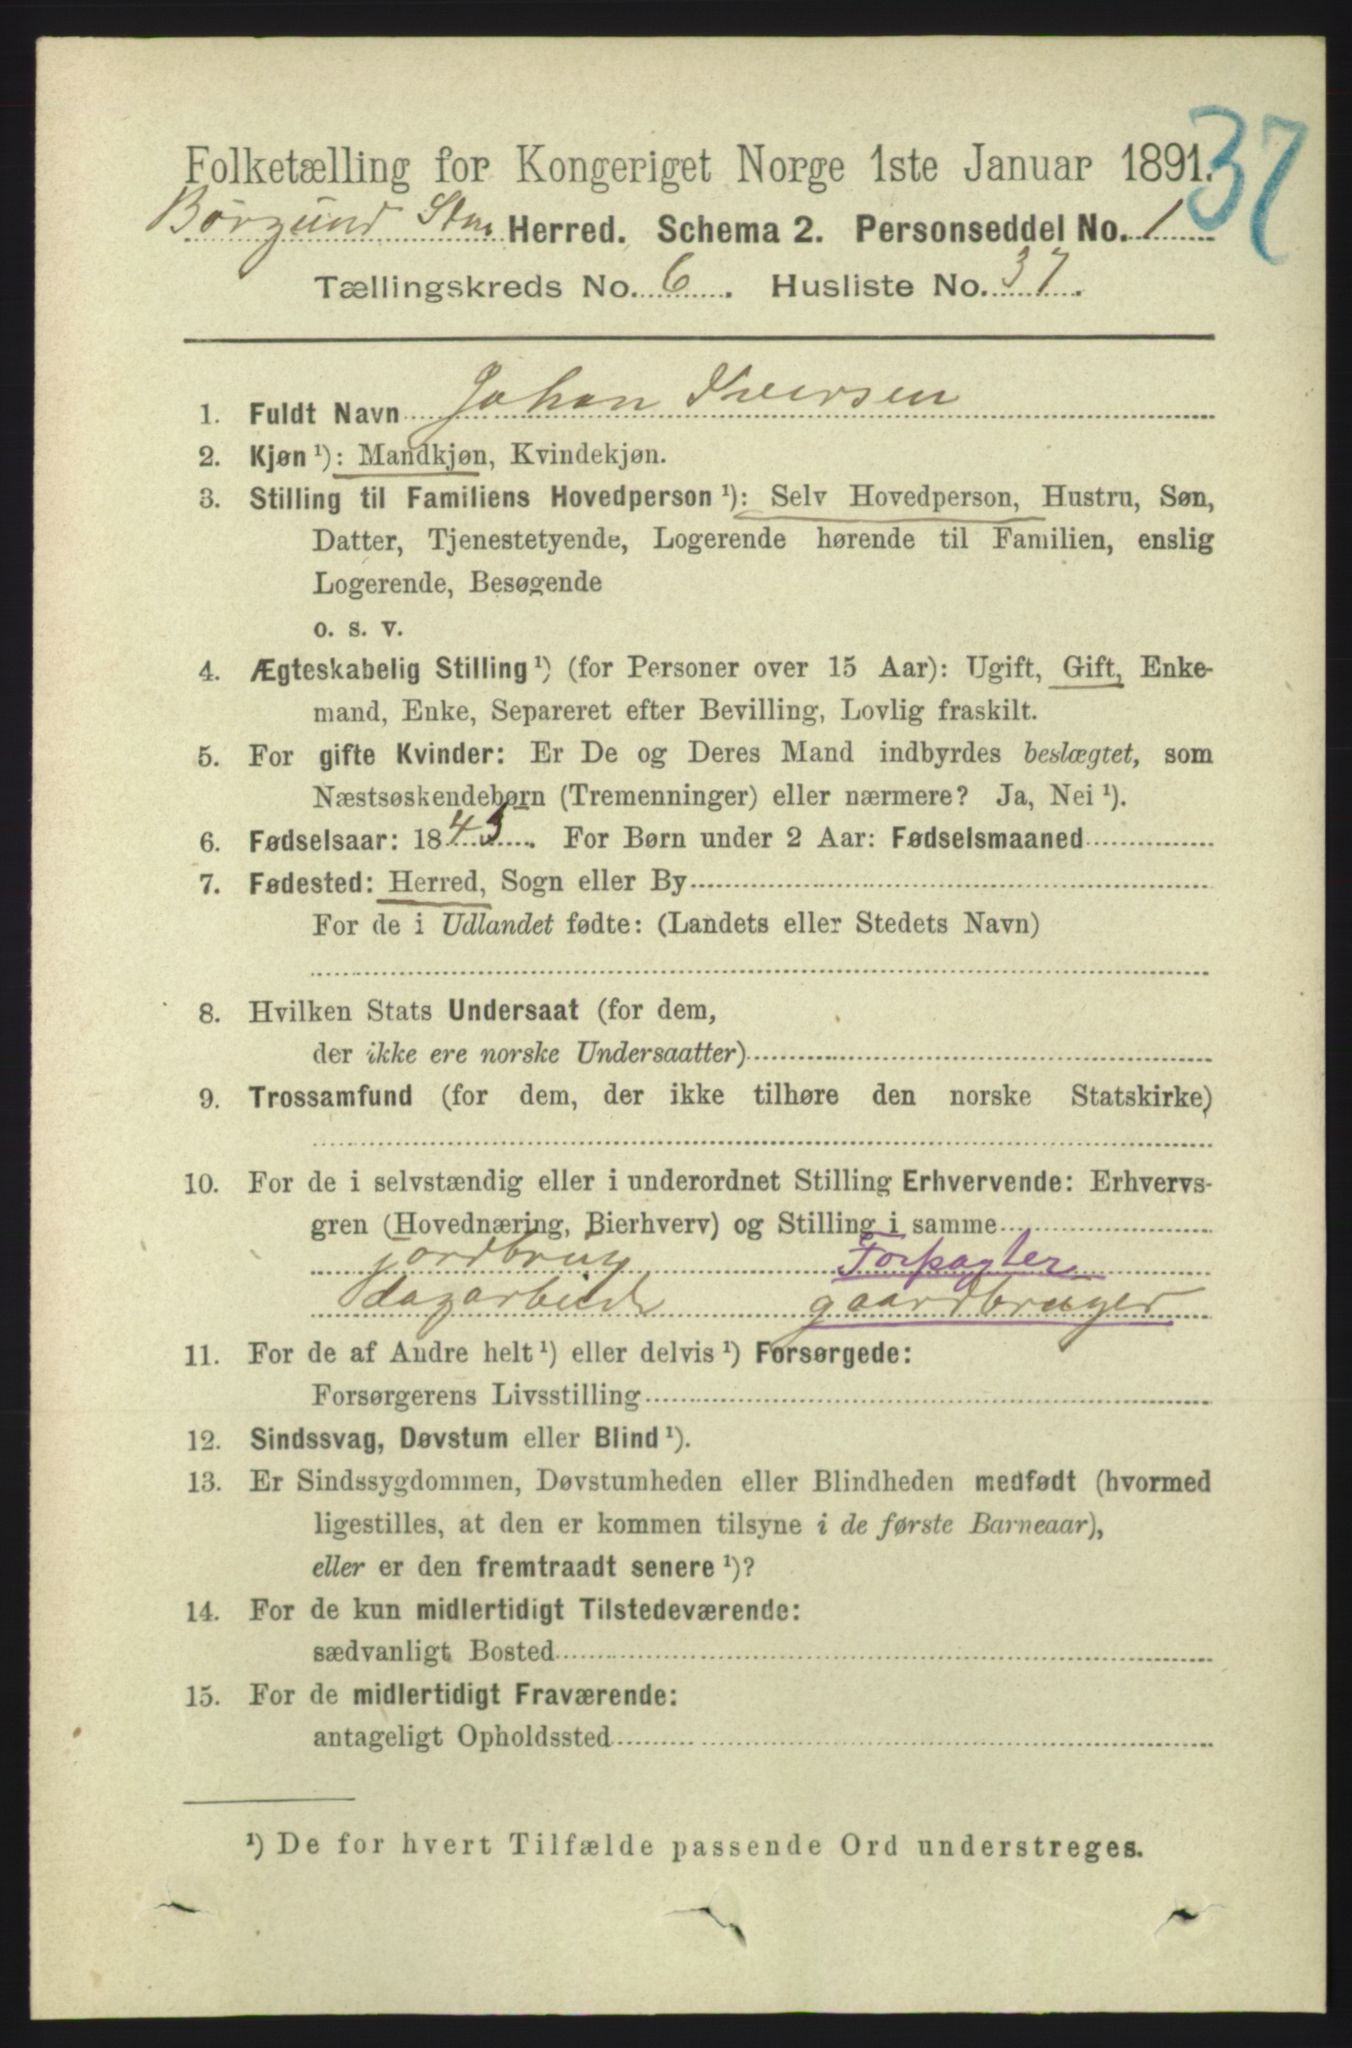 37
Folketælling for Kongeriget Norge 1ste Januar 1891.
Borgund Herred. Schema 2. Personseddel No. 1
Tællingskreds No. 6. Husliste No. 37.
1. Fuldt Navn Johan Iversen
2. Kjøn ¹): Mandkjøn, Kvindekjøn.
3. Stilling til Familiens Hovedperson ¹): Selv Hovedperson, Hustru, Søn,
Datter, Tjenestetyende, Logerende hørende til Familien, enslig
Logerende, Besøgende
o. s. v.
4. Ægteskabelig Stilling ¹) (for Personer over 15 Aar): Ugift, Gift, Enke-
mand, Enke, Separeret efter Bevilling, Lovlig fraskilt.
5. For gifte Kvinder: Er De og Deres Mand indbyrdes beslægtet, som
Næstsøskendebørn (Tremenninger) eller nærmere? Ja, Nei ¹).
6. Fødselsaar: 1843. For Børn under 2 Aar: Fødselsmaaned
7. Fødested: Herred, Sogn eller By
For de i Udlandet fødte: (Landets eller Stedets Navn)
8. Hvilken Stats Undersaat (for dem,
der ikke ere norske Undersaatter)
9. Trossamfund (for dem, der ikke tilhøre den norske Statskirke)
10. For de i selvstændig eller i underordnet Stilling Erhvervende: Erhvervs-
gren (Hovednæring, Bierhverv) og Stilling i samme
jordbrug Forpagter
dagarbeide gaardbruger
11. For de af Andre helt ¹) eller delvis ¹) Forsørgede:
Forsørgerens Livsstilling
12. Sindssvag, Døvstum eller Blind ¹).
13. Er Sindssygdommen, Døvstumheden eller Blindheden medfødt (hvormed
ligestilles, at den er kommen tilsyne i de første Barneaar),
eller er den fremtraadt senere ¹)?
14. For de kun midlertidigt Tilstedeværende:
sædvanligt Bosted
15. For de midlertidigt Fraværende:
antageligt Opholdssted
¹) De for hvert Tilfælde passende Ord understreges.